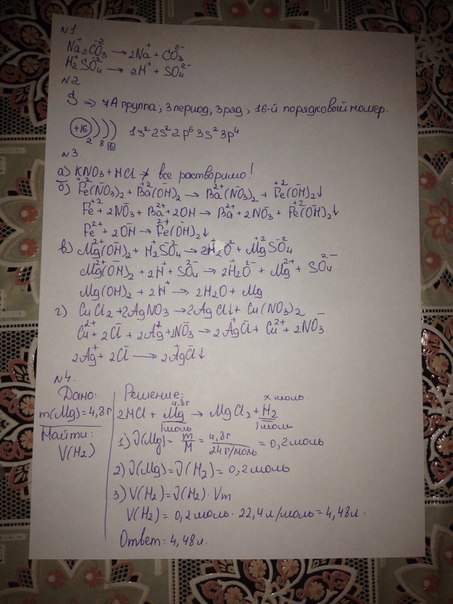 №1
Na₂CO₃ → 2Na⁺ + CO₃²⁻
H₂SO₄ → 2H⁺ + SO₄²⁻
№2
S ⇒ 4А группа, 3 период, 3 ряд, 16-й порядковый номер.
+16 ) ) ) 2 8 6 1s² 2s² 2p⁶ 3s² 3p⁴
№3
а) KNO₃ + HCl ≠ все растворимо!
б) Fe(NO₃)₂ + Ba(OH)₂ → Ba(NO₃)₂ + Fe(OH)₂↓
Fe²⁺ + 2NO₃⁻ + Ba²⁺ + 2OH⁻ → Ba²⁺ + 2NO₃⁻ + Fe(OH)₂↓
Fe²⁺ + 2OH⁻ → Fe(OH)₂↓
в) Mg(OH)₂ + H₂SO₄ → 2H₂O + MgSO₄
Mg(OH)₂ + 2H⁺ + SO₄²⁻ → 2H₂O + Mg²⁺ + SO₄²⁻
Mg(OH)₂ + 2H⁺ → 2H₂O + Mg
г) CuCl₂ + 2AgNO₃ → 2AgCl↓ + Cu(NO₃)₂
Cu²⁺ + 2Cl⁻ + 2Ag⁺ + 2NO₃⁻ → 2AgCl + Cu²⁺ + 2NO₃⁻
2Ag⁺ + 2Cl⁻ → 2AgCl↓
№4
Дано:
m(Mg) = 4,8г
Найти:
V(H₂)
Решение:
4,8г x моль
2HCl + Mg → MgCl₂ + H₂
1моль 1моль
1) ν(Mg) = m/M = 4,8г/24г/моль = 0,2моль
2) ν(Mg) = ν(H₂) = 0,2моль
3) V(H₂) = ν(H₂) · Vm
V(H₂) = 0,2моль · 22,4л/моль = 4,48л.
Ответ: 4,48л.